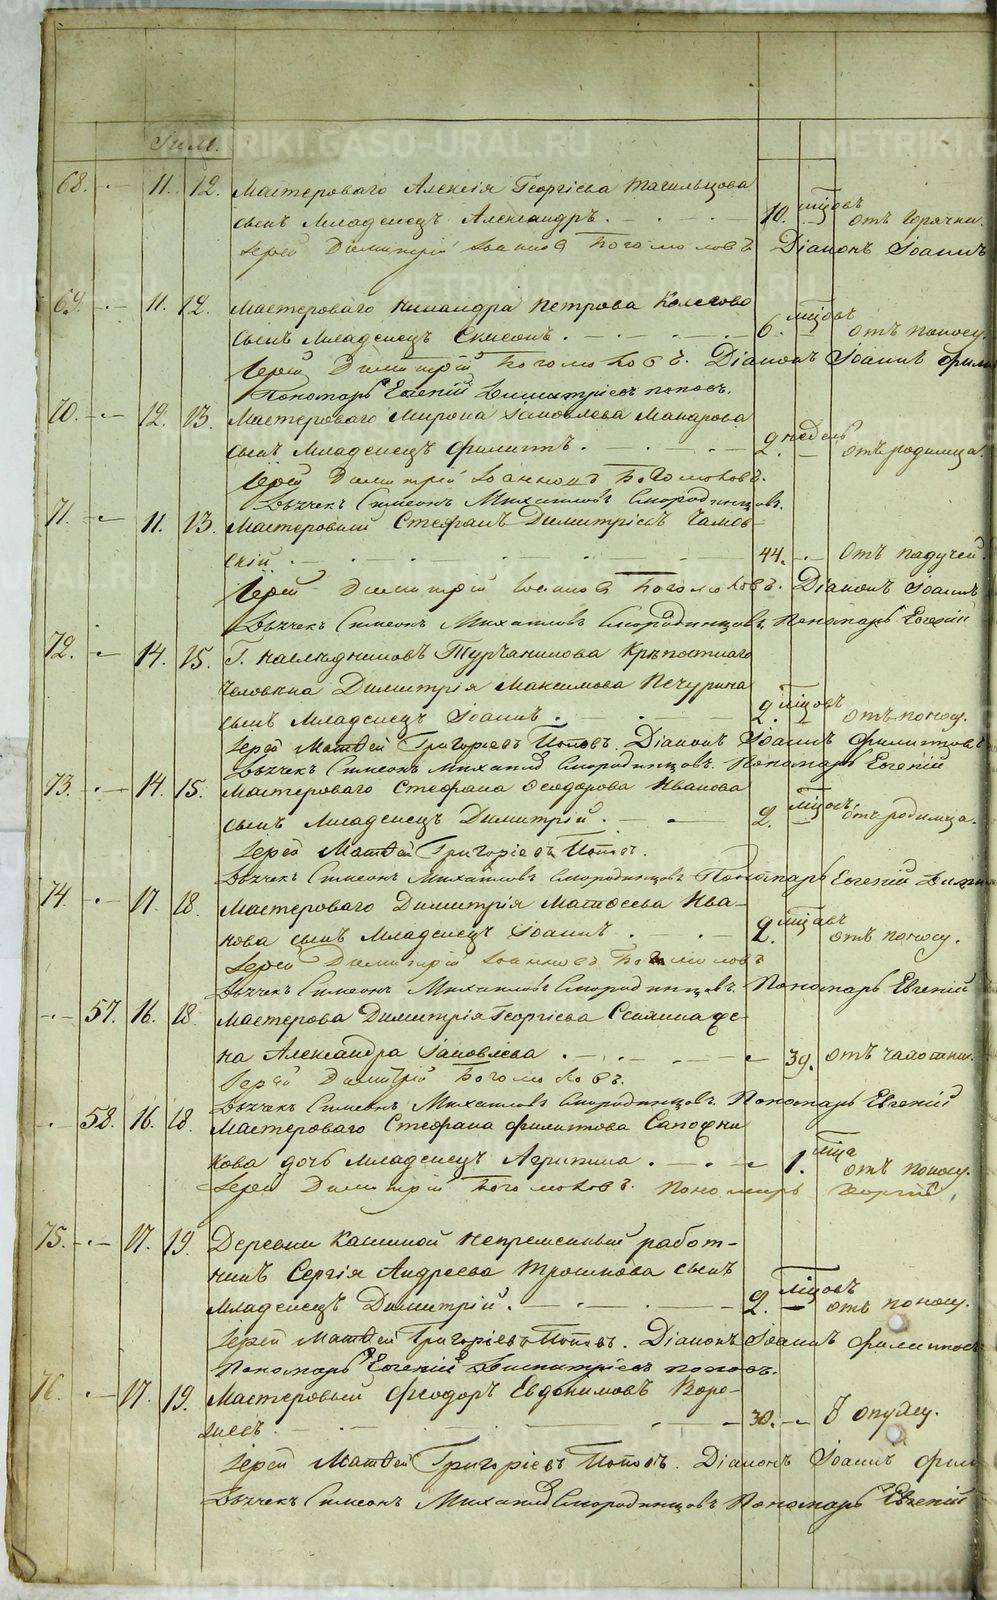 68. 11. 12. Мастероваго Алексія Георгіева Тагильцова
сынъ Младенецъ Александръ. 10. мѣсяцовъ отъ горячки.
Іерей Димитрій Іоанновъ Боголюбовъ Діаконъ Іоаннъ
69. 11. 12. Мастероваго Никандра Петрова
сынъ Младенецъ Симеонъ. 6. отъ поносу.
Іерей Димитрій Боголюбовъ. Діаконъ Іоаннъ
Пономарь Евгеній Димитріевъ Поповъ.
70. 12. 13. Мастероваго Мирона Іаковлева Макарова
сынъ Младенецъ Филиппъ. 2. недель отъ родимца.
Іерей Димитрій Іоанновъ Боголюбовъ.
Дьячекъ Симеонъ Михаиловъ Смородинцовъ.
71. 11. 13. Мастеровый Стефанъ Димитріевъ
скій. 44. отъ падучей.
Іерей Димитрій Іоанновъ Боголюбовъ. Діаконъ Іоаннъ
Дьячекъ Симеонъ Михаиловъ Смородинцовъ. Пономарь Евгеній
72. 14. 15. Г. наслѣдниковъ Турчанинова крѣпостнаго
человѣка Димитрія Максимова Печурина
сынъ Младенецъ Іоаннъ. 2. отъ поносу.
Іерей Матѳей Григоріевъ Поповъ. Діаконъ Іоаннъ Филипповъ
Дьячекъ Симеонъ Михаиловъ Смородинцовъ. Пономарь Евгеній
73. 14. 15. Мастероваго Стефана Ѳеодорова Иванова
сынъ Младенецъ Димитрій. 2. отъ родимца.
Іерей Матѳей Григоріевъ Поповъ.
Дьячекъ Симеонъ Михаиловъ Смородинцовъ Пономарь Евгеній
74. 17. 18. Мастероваго Димитрія Матѳеева Ива-
нова сынъ Младенецъ Іоаннъ. 2. отъ поносу.
Іерей Димитрій Іоанновъ Боголюбовъ
Дьячекъ Симеонъ Михаиловъ Смородинцовъ. Пономарь Евгеній
57. 16. 18. Мастерова Димитрія Георгіева
на Александра Іаковлева. 39. отъ чахотки.
Іерей Димитрій Боголюбовъ.
Дьячекъ Симеонъ Михаиловъ Смородинцовъ. Пономарь Евгеній
58. 16. 18. Мастероваго Стефана Филиппова Сапожни
кова дочь Младенецъ Агрипина. 1. мѣсяца отъ поносу.
Іерей Димитрій Боголюбовъ. Пономарь
75. 17. 19. Деревни Кашиной непременный работ-
никъ Сергія Андреева Трошкова сынъ
Младенецъ Димитрій. 2. отъ поносу.
Іерей Матѳей Григоріевъ Поповъ. Діаконъ Іоаннъ Филипповъ
Пономарь Евгеній Димитріевъ Поповъ.
76. 17. 19. Мастеровый Ѳеодоръ Евдокимовъ Воро-
30. опухлу.
Іерей Матѳей Григоріевъ Поповъ. Діаконъ Іоаннъ
Дьячекъ Симеонъ Михаиловъ Смородинцовъ Пономарь Евгеній
METRIKI.GASO-URAL.RU